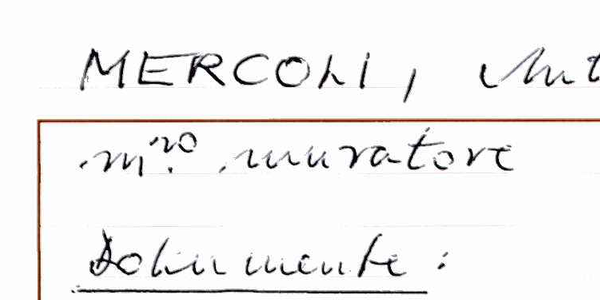 MERCOLI, Ant
m.ro muratore
Dokumente: